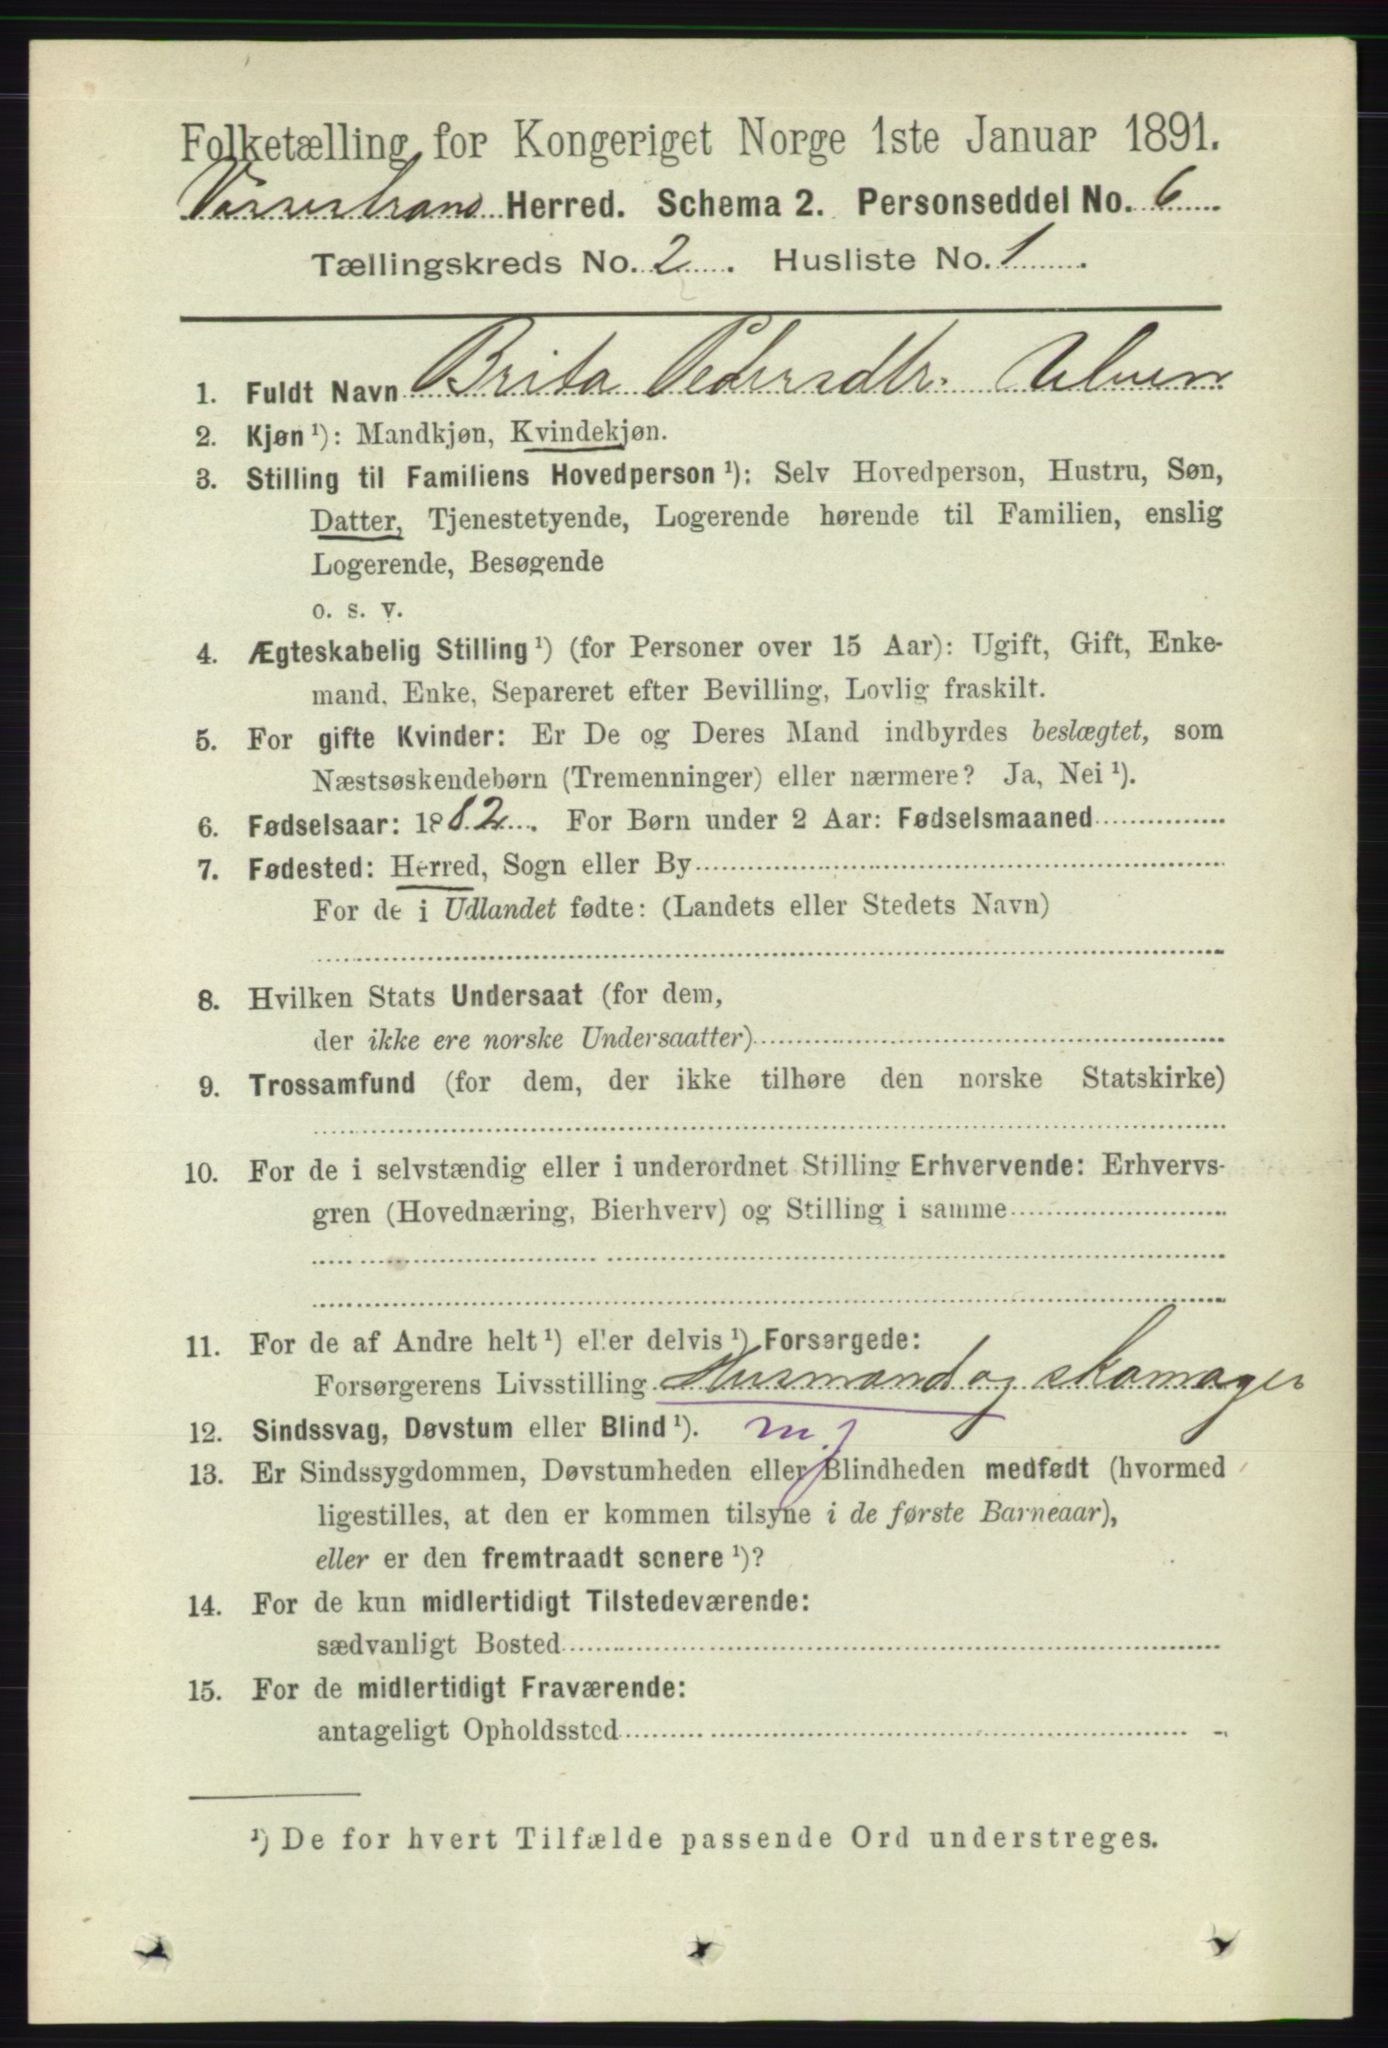 Folketælling for Kongeriget Norge 1ste Januar 1891.
Vossestrand Herred. Schema 2. Personseddel No. 6
Tællingskreds No. 2. Husliste No. 1.
1. Fuldt Navn Brita Pedersdtr. Ulven
2. Kjøn ¹): Mandkjøn, Kvindekjøn.
3. Stilling til Familiens Hovedperson ¹): Selv Hovedperson, Hustru, Søn,
Datter, Tjenestetyende, Logerende hørende til Familien, enslig
Logerende, Besøgende
o. s. v.
4. Ægteskabelig Stilling ¹) (for Personer over 15 Aar): Ugift, Gift, Enke-
mand, Enke, Separeret efter Bevilling, Lovlig fraskilt.
5. For gifte Kvinder: Er De og Deres Mand indbyrdes beslægtet, som
Næstsøskendebørn (Tremenninger) eller nærmere? Ja, Nei ¹).
6. Fødselsaar: 1882. For Børn under 2 Aar: Fødselsmaaned
7. Fødested: Herred, Sogn eller By
For de i Udlandet fødte: (Landets eller Stedets Navn)
8. Hvilken Stats Undersaat (for dem,
der ikke ere norske Undersaatter)
9. Trossamfund (for dem, der ikke tilhøre den norske Statskirke)
10. For de i selvstændig eller i underordnet Stilling Erhvervende: Erhvervs-
gren (Hovednæring, Bierhverv) og Stilling i samme
11. For de af Andre helt ¹) eller delvis ¹) Forsørgede:
Forsørgerens Livsstilling Husmand og skomager
12. Sindssvag, Døvstum eller Blind ¹). m.j
13. Er Sindssygdommen, Døvstumheden eller Blindheden medfødt (hvormed
ligestilles, at den er kommen tilsyne i de første Barneaar),
eller er den fremtraadt senere ¹)?
14. For de kun midlertidigt Tilstedeværende:
sædvanligt Bosted
15. For de midlertidigt Fraværende:
antageligt Opholdssted
¹) De for hvert Tilfælde passende Ord understreges.